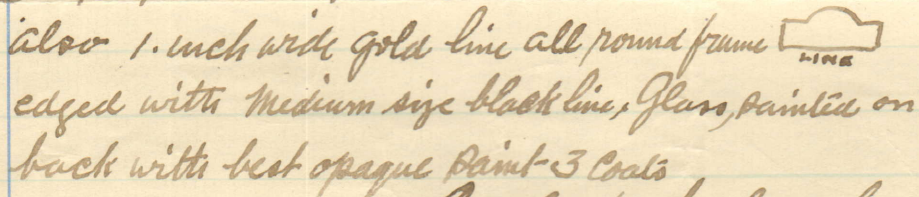 also 1. inch wide gold line all round frame
LINE
edged with Medium size black line, Glass, painted on
back with best opaque paint 3 Coats